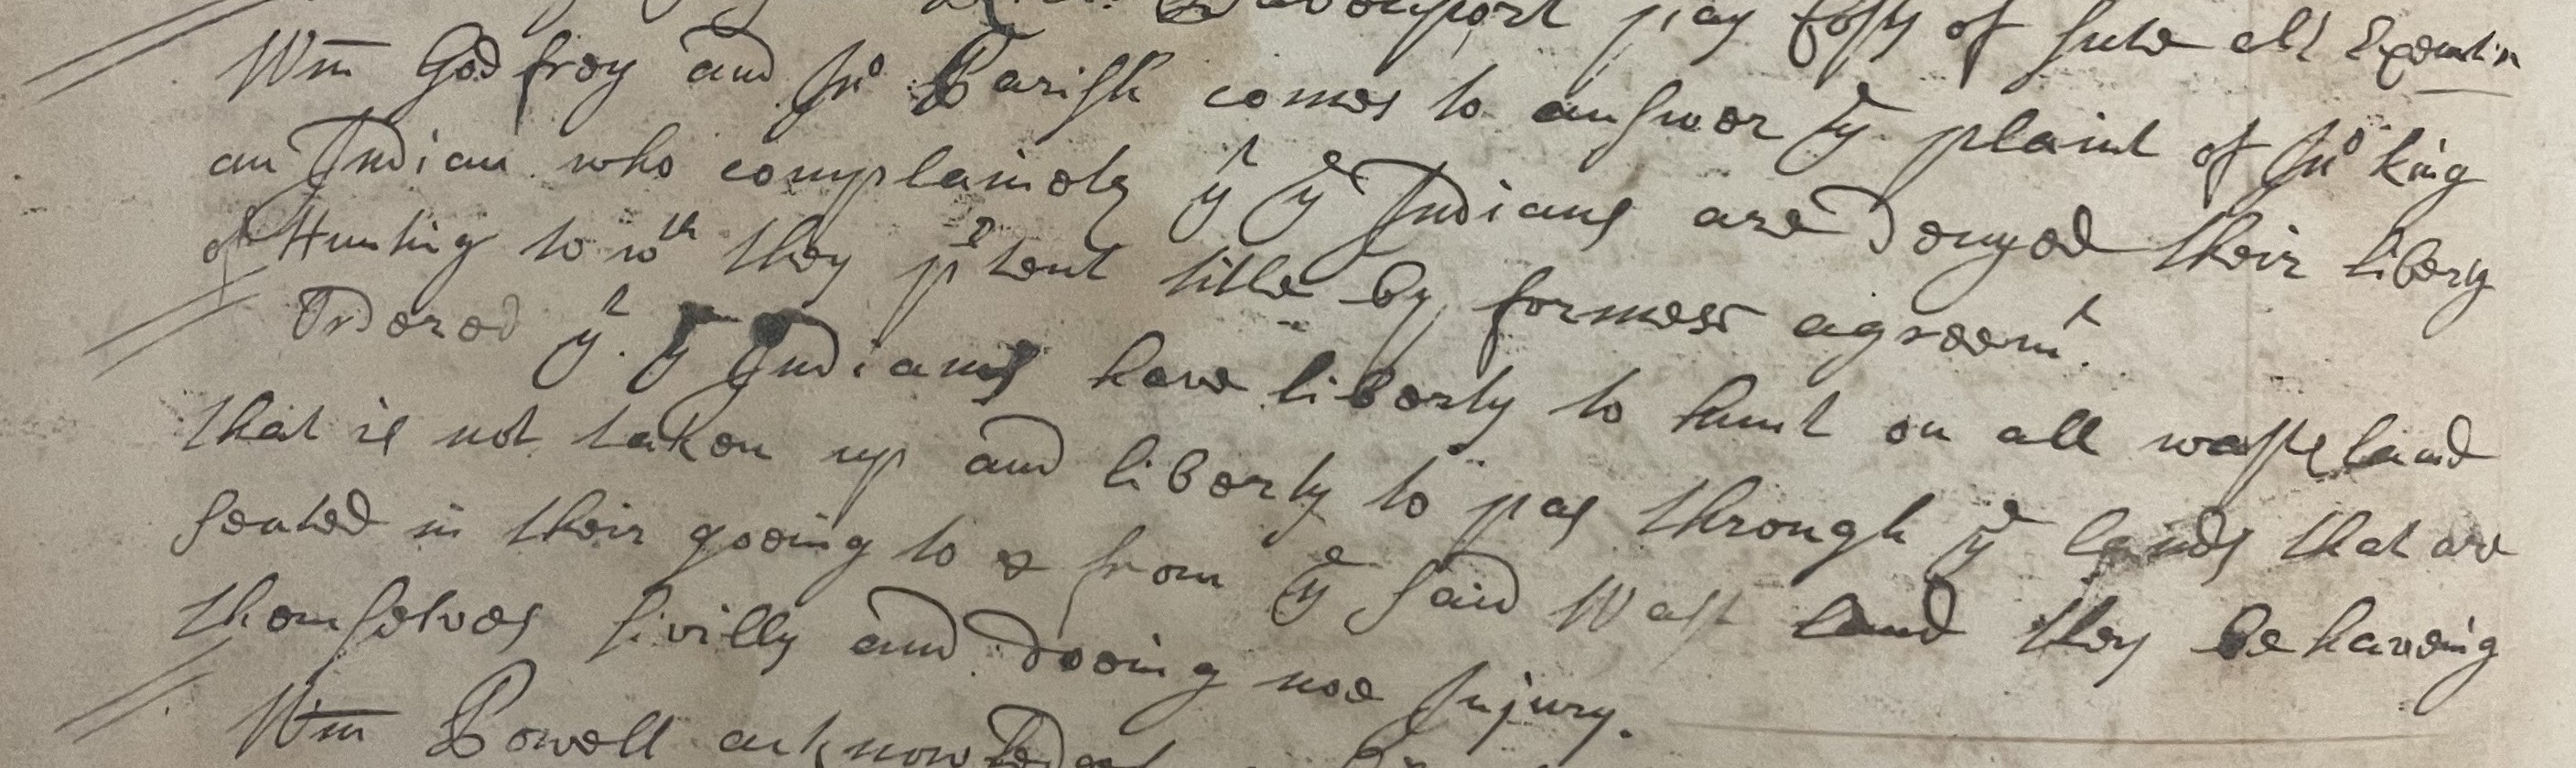 Davenport pay Costs of sute als Execution
Wm Godfrey and Jno Parish comes to answer ye plaint of Jno king
an Indian who complaineth yt ye Indians are denyed their libery
of Hunting to wch they ptend title by former agreemt.
Ordered yt ye Indians have liberty to hunt on all waste land
that is not taken up and liberty to pas through ye lands that are
seated in their gooing to & from ye said Wast land they behaveing
themselves sivilly and dooing noe Injury.
Wm Powell acknowledges